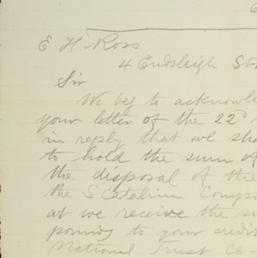 E H Ross
4 Endsleigh St
Sir
We beg to acknowle
your letter of the 22d
in reply that we sha
to hold the sum of
the disposal of the
the S Catalina Compa
at we receive the su
pounds to your credit
National Trust Co